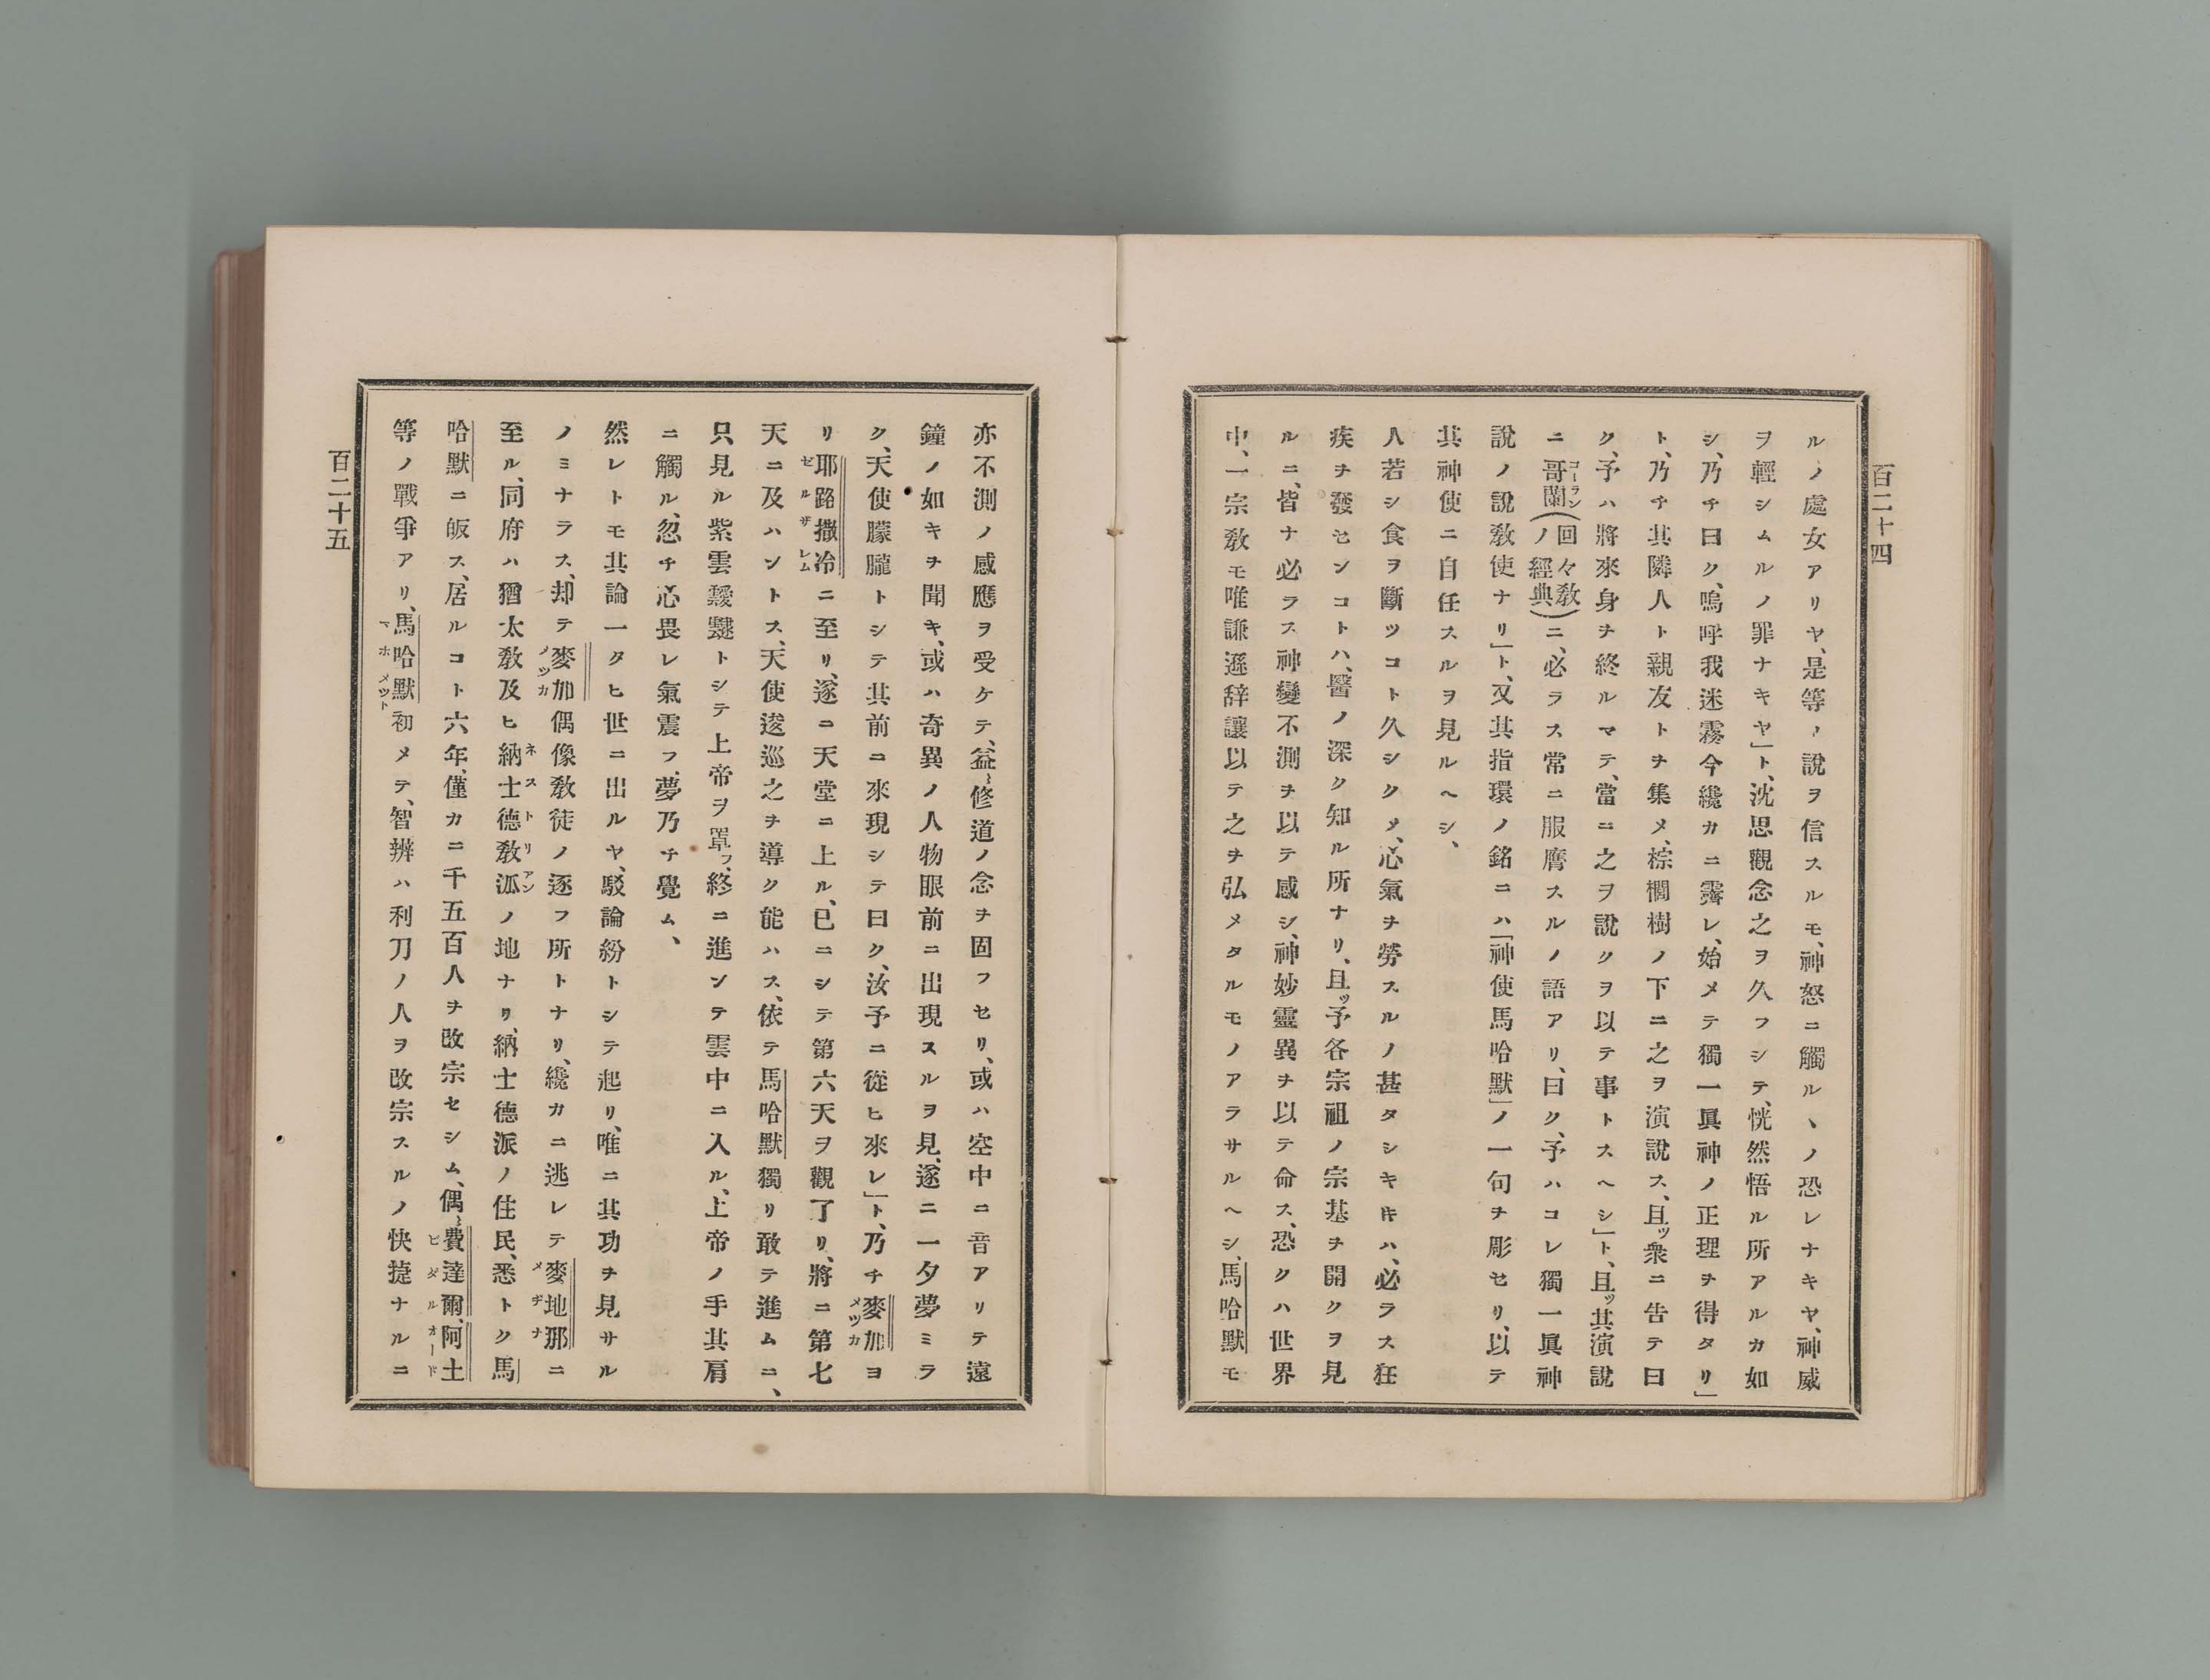 百二十四
ルノ處女アリヤ、是等ノ說ヲ信スルモ、神怒ニ觸ルヽノ恐レナキヤ、神威
ヲ輕シムルノ罪ナキヤ」ト、沈思觀念之ヲ久フシテ、恍然悟ル所アルカ如
シ、乃チ曰ク、嗚呼我迷霧今纔カニ霽レ、始メテ獨一眞神ノ正理ヲ得タリ」
ト、乃チ其隣人ト親友トヲ集メ、棕櫚樹ノ下ニ之ヲ演說ス、且ッ衆ニ告テ曰
ク、予ハ將來身ヲ終ルマテ、當ニ之ヲ說クヲ以テ事トスヘシ」ト、且ッ其演說
ニ哥蘭コーラン(回々敎ノ經典)ニ、必ラス常ニ服膺スルノ語アリ、曰ク、予ハコレ獨一眞神
說ノ說敎使ナリ」ト、又其指環ノ銘ニハ「神使馬哈默」ノ一句ヲ彫セリ、以テ
其神使ニ自任スルヲ見ルヘシ、
人若シ食ヲ斷ツコト久シクメ、心氣ヲ勞スルノ甚タシキキハ、必ラス狂
疾ヲ發センコトハ、醫ノ深ク知ル所ナリ、且ッ予各宗祖ノ宗基ヲ開クヲ見
ルニ、皆ナ必ラス神變不測ヲ以テ感シ、神妙靈異ヲ以テ命ス、恐クハ世界
中、一宗敎モ唯謙遜辞讓以テ之ヲ弘メタルモノアラサルヘシ、馬哈默モ
亦不測ノ感應ヲ受ケテ、益〻修道ノ念ヲ固フセリ、或ハ空中ニ音アリテ遠
鐘ノ如キヲ聞キ、或ハ奇異ノ人物眼前ニ出現スルヲ見、遂ニ一夕夢ミラ
ク、天使朦朧トシテ其前ニ來現シテ曰ク、汝予ニ從ヒ來レ」ト、乃チ麥加メッカヨ
リ耶路撒冷ゼルザレムニ至リ、遂ニ天堂ニ上ル、已ニシテ第六天ヲ觀了リ、將ニ第七
天ニ及ハントス、天使逡巡之ヲ導ク能ハス、依テ馬哈默獨リ敢テ進ムニ、
只見ル紫雲靉靆トシテ上帝ヲ罩フ、終ニ進ンテ雲中ニ入ル、上帝ノ手其肩
ニ觸ル、忽チ心畏レ氣震フ、夢乃チ覺ム、
然レトモ其論一タヒ世ニ出ルヤ、駁論紛トシテ起リ、唯ニ其功ヲ見サル
ノミナラス、却テ麥加メッカ偶像敎徒ノ逐フ所トナリ、纔カニ逃レテ麥地那メヂナニ
至ル、同府ハ猶太敎及ヒ納士德敎派ネストリアンノ地ナリ、納士德派ノ住民、悉トク馬
哈默ニ皈ス、居ルコト六年、僅カニ千五百人ヲ改宗セシム、偶〻費達爾ビダル、阿土オード
等ノ戰爭アリ、馬哈默マホメット初メテ、智辨ハ利刀ノ人ヲ改宗スルノ快捷ナルニ
百二十五